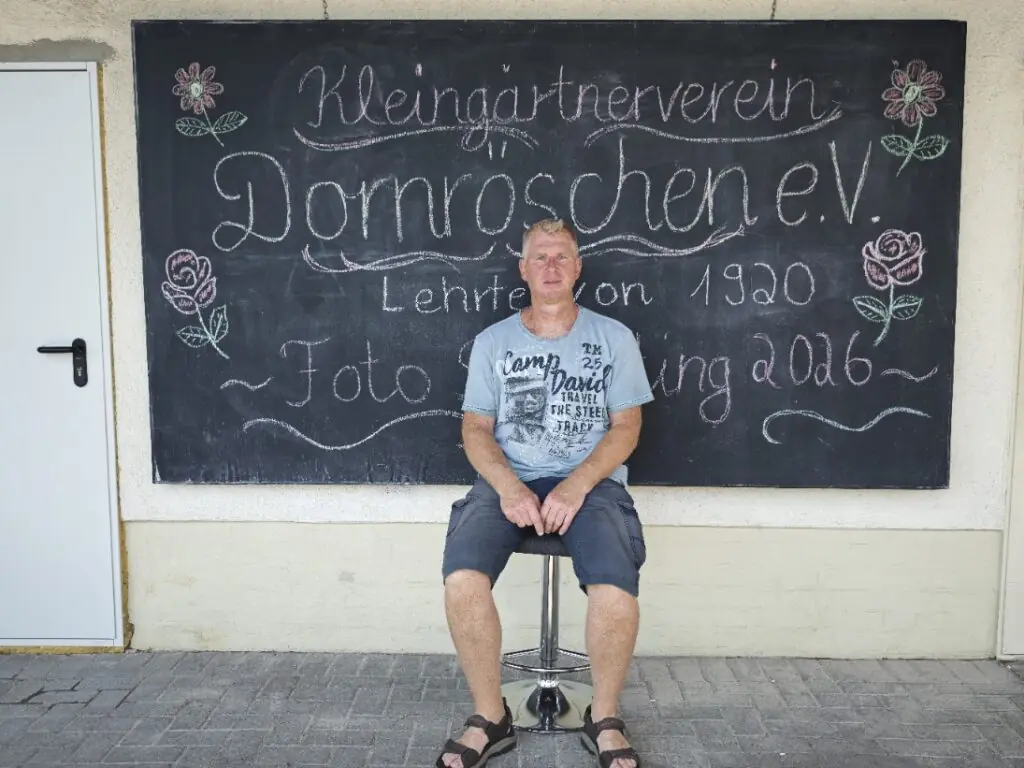 Kleingärtnerverein
Dornröschen e.V.
Lehrte von 1920
~ Foto S ing 2026 ~
Camp
David
TM
25
TRAVEL
THE STEE
TRACK